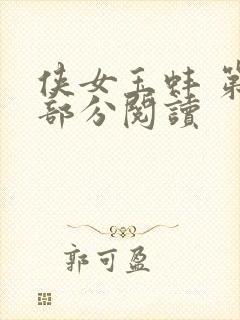 侠女玉蚌 第
部分閱讀
郭可盈